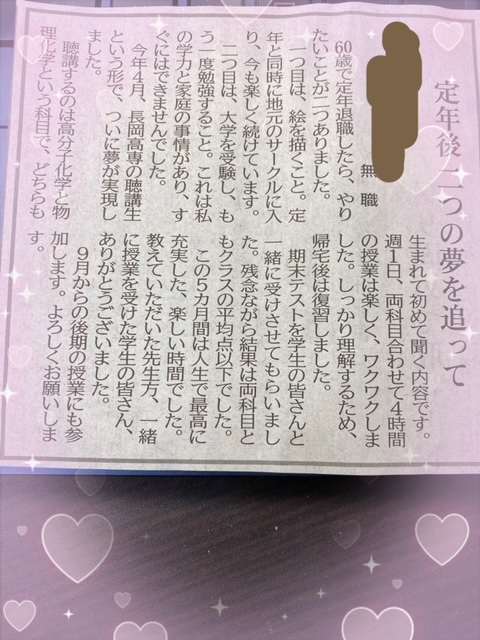 定年後 二つの夢を追って
無 職
60歳で定年退職したら、やり
たいことが二つありました。
一つ目は、絵を描くこと。定
年と同時に地元のサークルに入
り、今も楽しく続けています。
二つ目は、大学を受験し、も
う一度勉強すること。これは私
の学力と家庭の事情があり、す
ぐにはできませんでした。
今年４月、長岡高専の聴講生
という形で、ついに夢が実現し
ました。
聴講するのは高分子化学と物
理化学という科目で、どちらも
生まれて初めて聞く内容です。
週１日、両科目合わせて４時間
の授業は楽しく、ワクワクしま
した。しっかり理解するため、
帰宅後は復習しました。
期末テストを学生の皆さんと
一緒に受けさせてもらいまし
た。残念ながら結果は両科目と
もクラスの平均点以下でした。
この５カ月間は人生で最高に
充実した、楽しい時間でした。
教えていただいた先生方、一緒
に授業を受けた学生の皆さん、
ありがとうございました。
９月からの後期の授業にも参
加します。よろしくお願いしま
す。